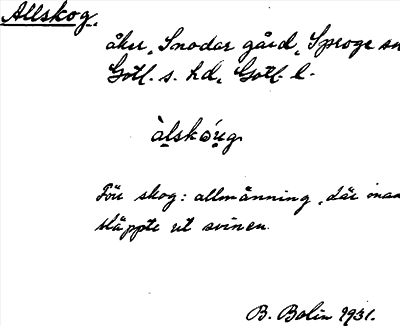 Allskog.
åker, Snodar gård, Sproge sn
Gotl. s. hd, Gotl. l.
àlskóug
Förr skog: allmänning, där man
släppte ut svinen.
B. Bolin 1931.